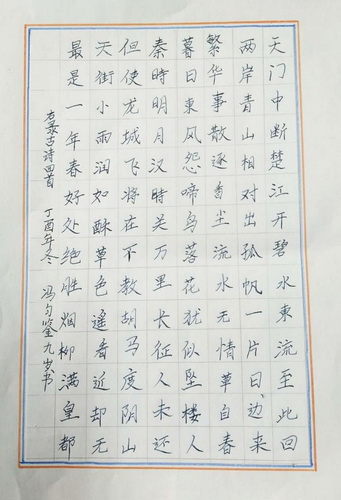 天门中断楚江开碧水東流至此回
两岸青山相对出孤帆一片日边来
繁华事散逐香尘流水无情草自春
暮日東风怨啼鸟落花犹似坠楼人
秦時明月汉時关万里长征人未还
但使龙城飞将在不教胡马度阴山
天街小雨润如酥草色遥看近却无
最是一年春好处绝胜烟柳满皇都
右录古诗四首 丁酉年冬 冯 九岁书